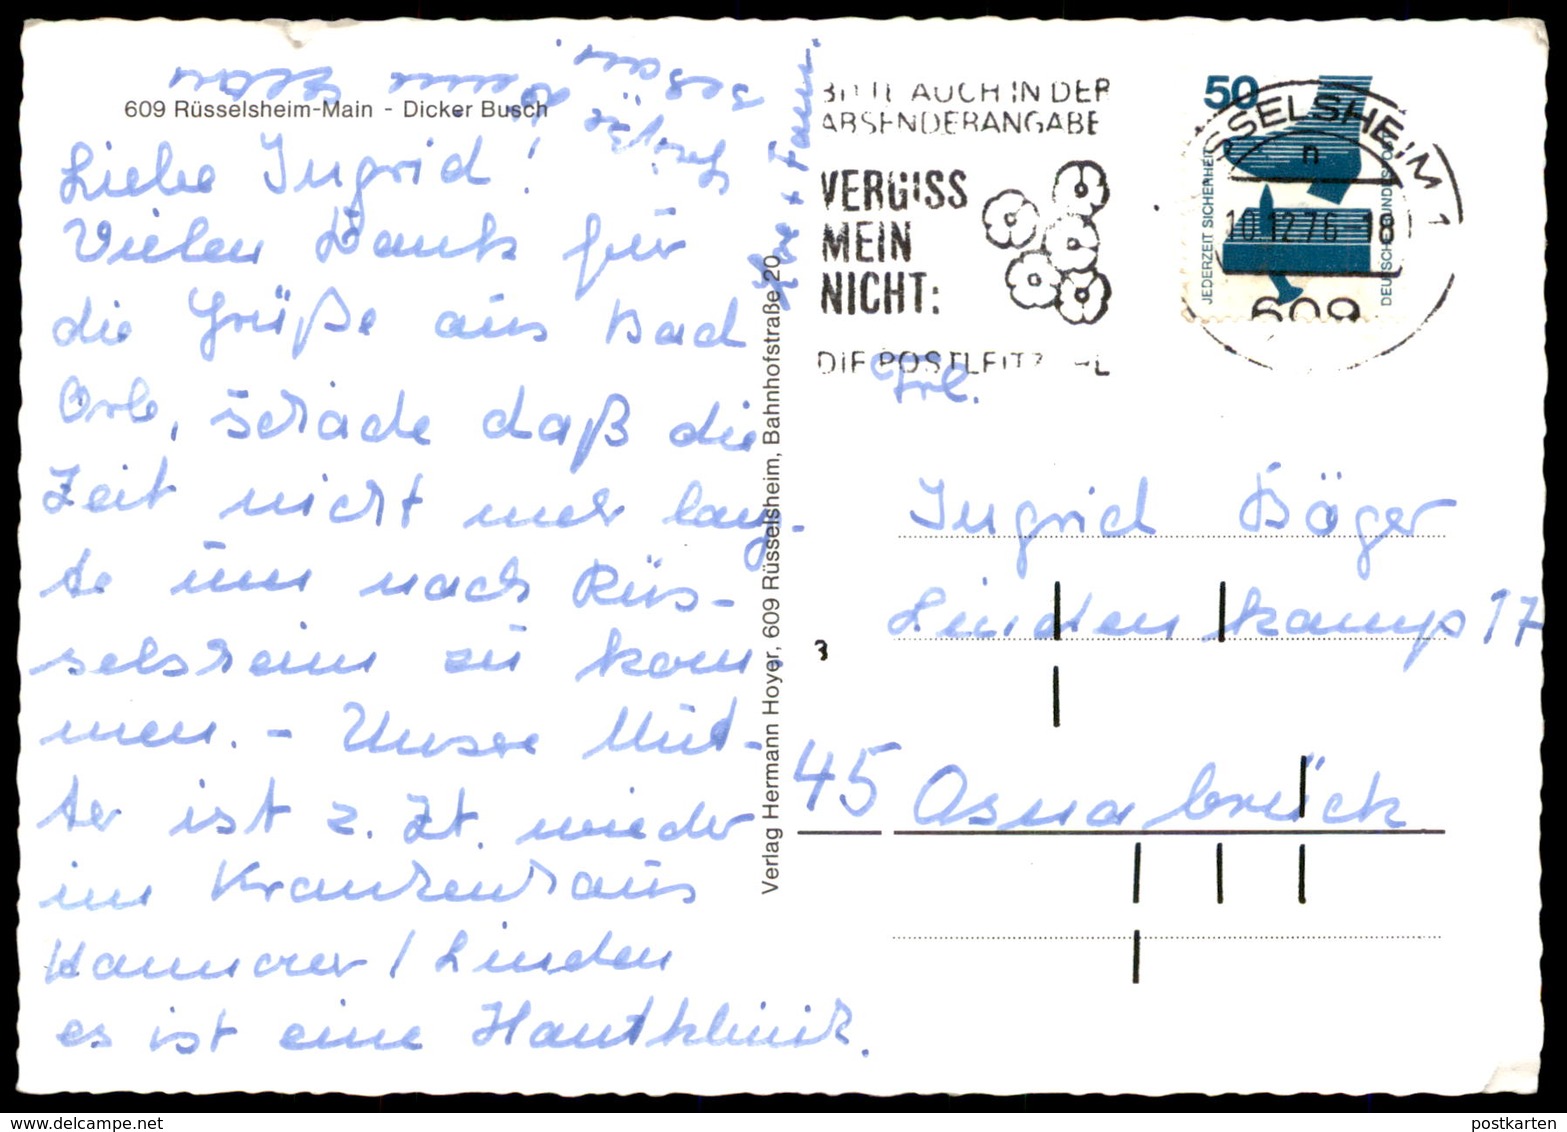 609 Rüsselsheim-Main - Dicker Busch
Liebe Ingrid!
Vielen Dank für
die Grüße aus Bad
Orb, schade daß die
Zeit nicht mehr lang-
te um nach Rüs-
selsheim zu kom
men. - Unsere Mut-
ter ist z. Zt. wieder
im Krankenhaus
Hannover / Linden
es ist eine Hautklinik.
+ Fam.
Verlag Hermann Hoyer, 609 Rüsselsheim, Bahnhofstraße 20
BITTE AUCH IN DER
ABSENDERANGABE
VERGISS
MEIN
NICHT:
DIE POSTLEITZAHL
50
JEDERZEIT SICHERHEIT
DEUTSCHE BUNDESPOST
RÜSSELSHEIM 1
n
10.12.76 18
609
Frl.
Ingrid Böger
Lindenkamp 17
45 Osnabrück
postkarten
www.delcampe.net